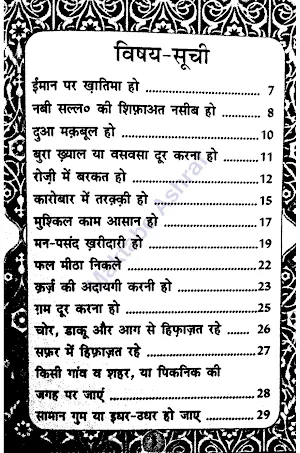 विषय-सूची
ईमान पर ख़ातिमा हो ........................ 7
नबी सल्ल० की शिफ़ाअत नसीब हो ............ 8
दुआ मक़बूल हो ........................ 10
बुरा ख़्याल या वसवसा दूर करना हो ............ 11
रोज़ी में बरकत हो ........................ 12
कारोबार में तरक़्क़ी हो ........................ 15
मुश्किल काम आसान हो ........................ 17
मन-पसंद ख़रीदारी हो ........................ 19
फल मीठा निकले ........................ 22
क़र्ज़ की अदायगी करनी हो ........................ 23
ग़म दूर करना हो ........................ 25
चोर, डाकू और आग से हिफ़ाज़त रहे ...... 26
सफ़र में हिफ़ाज़त रहे ........................ 27
किसी गांव व शहर, या पिकनिक की
जगह पर जाएं ........................ 28
सामान गुम या इधर-उधर हो जाए ............ 29